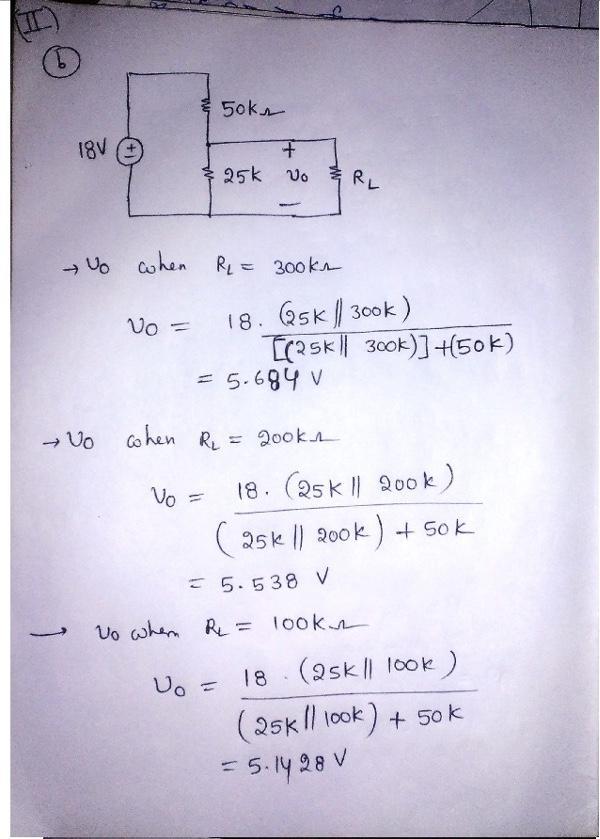 (II)
(b)
50kΩ
18V
+
25k vo RL
−
→ vo when RL = 300kΩ
vo = 18. (25k || 300k)
[(25k || 300k)] + (50k)
= 5.684 V
→ vo when RL = 200kΩ
vo = 18. (25k || 200k)
(25k || 200k) + 50k
= 5.538 V
→ vo when RL = 100kΩ
vo = 18 . (25k || 100k)
(25k || 100k) + 50k
= 5.1428 V